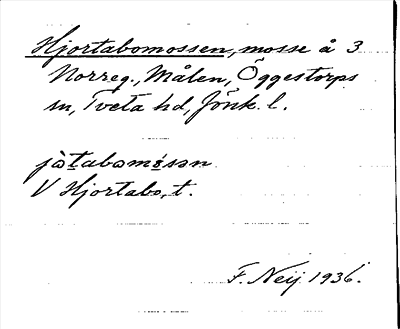 Hjortabomossen, mosse å 3
Norreg., Målen, Öggestorps
sn, Tveta hd, Jönk. l.
jòtabomósən
V Hjortabo, t.
F. Neij 1936.